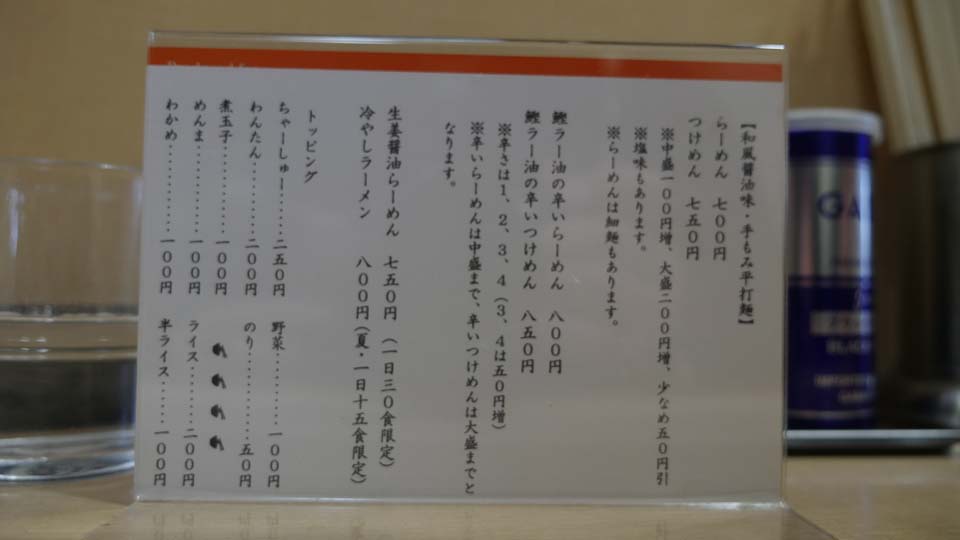 【和風醤油味・手もみ平打麺】
らーめん 七00円
つけめん 七五0円
※中盛一00円増、大盛二00円増、少なめ五0円引
※塩味もあります。
※らーめんは細麺もあります。
鰹ラー油の辛いらーめん 八00円
鰹ラー油の辛いつけめん 八五0円
※辛さは1、2、3、4(3、4は五0円増)
※辛いらーめんは中盛まで、辛いつけめんは大盛までと
なります。
生姜醤油らーめん 七五0円 (一日三0食限定)
冷やしラーメン 八00円(夏・一日十五食限定)
トッピング
ちゃーしゅー......二五0円
野菜............一00円
わんたん.........二00円
のり............五0円
煮玉子............一00円
めんま............一00円
ライス.........二00円
わかめ............一00円
半ライス......一00円